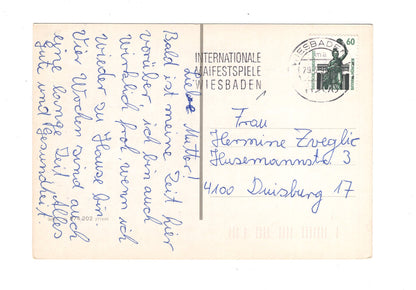 Liebe Mutter!
Bald ist meine Zeit hier
vorüber, ich bin auch
wirklich froh, wenn ich
wieder zu Hause bin.
Vier Wochen sind auch
eine lange Zeit. Alles
Gute und Gesundheit.
INTERNATIONALE
MAIFESTSPIELE
WIESBADEN
WIESBADEN
60
Frau
Hermine Zveglic
Husemannstr 3
4100 Duisburg 17